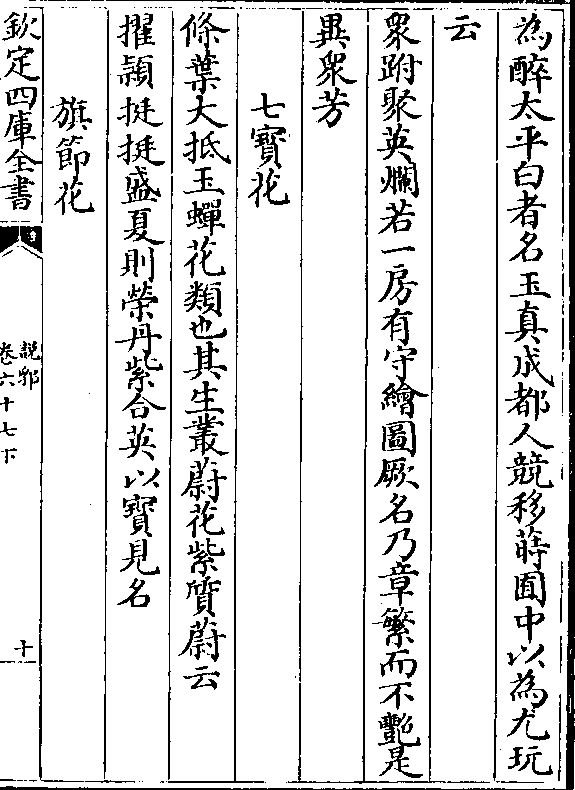 為醉太平白者名玉真成都人競移蒔圃中以為尤玩
云
眾跗聚英爛若一房有守繪圖厥名乃章繁而不豔是
異眾芳
七寶花
條葉大抵玉蟬花類也其生叢蔚花紫質蔚云
擢頴挺挺盛夏則榮丹紫合英以寶見名
旗節花
欽定四庫全書
說郛
卷六十七下
十